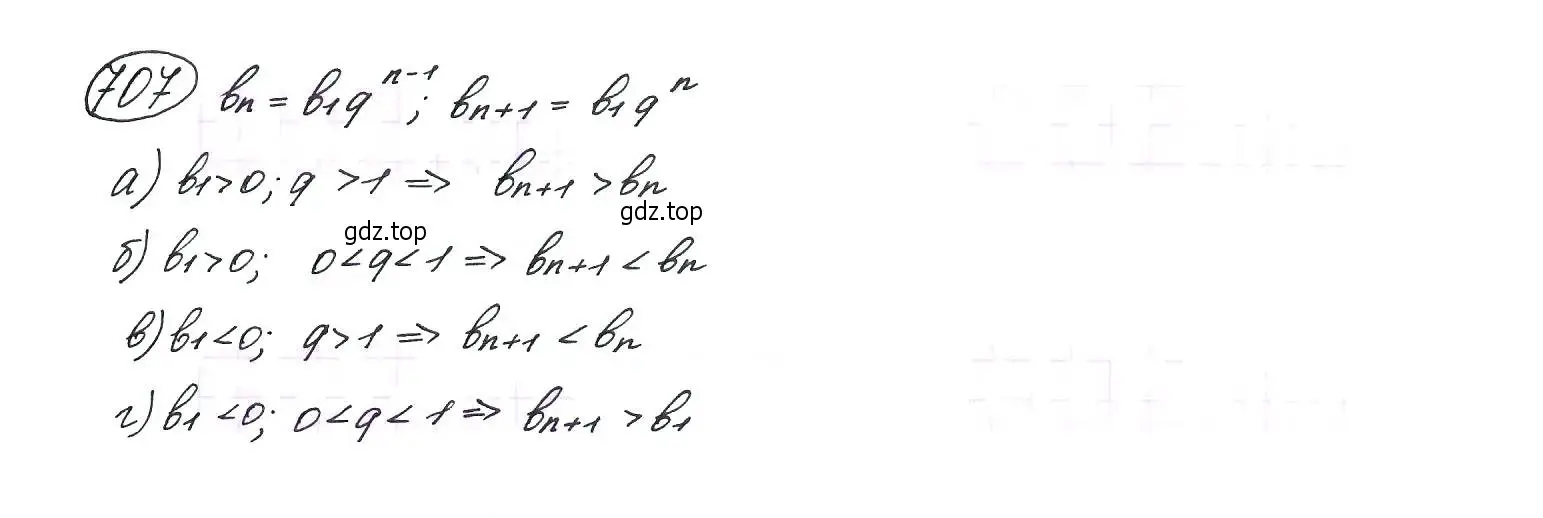 707 bn = b1q^(n-1); bn+1 = b1q^n
а) b1>0; q >1 => bn+1 >bn
gdz.top
gdz.top
б) b1>0; 0<q<1 => bn+1 < bn
в) b1<0; q>1 => bn+1 < bn
г) b1 <0; 0<q<1 => bn+1 >b1